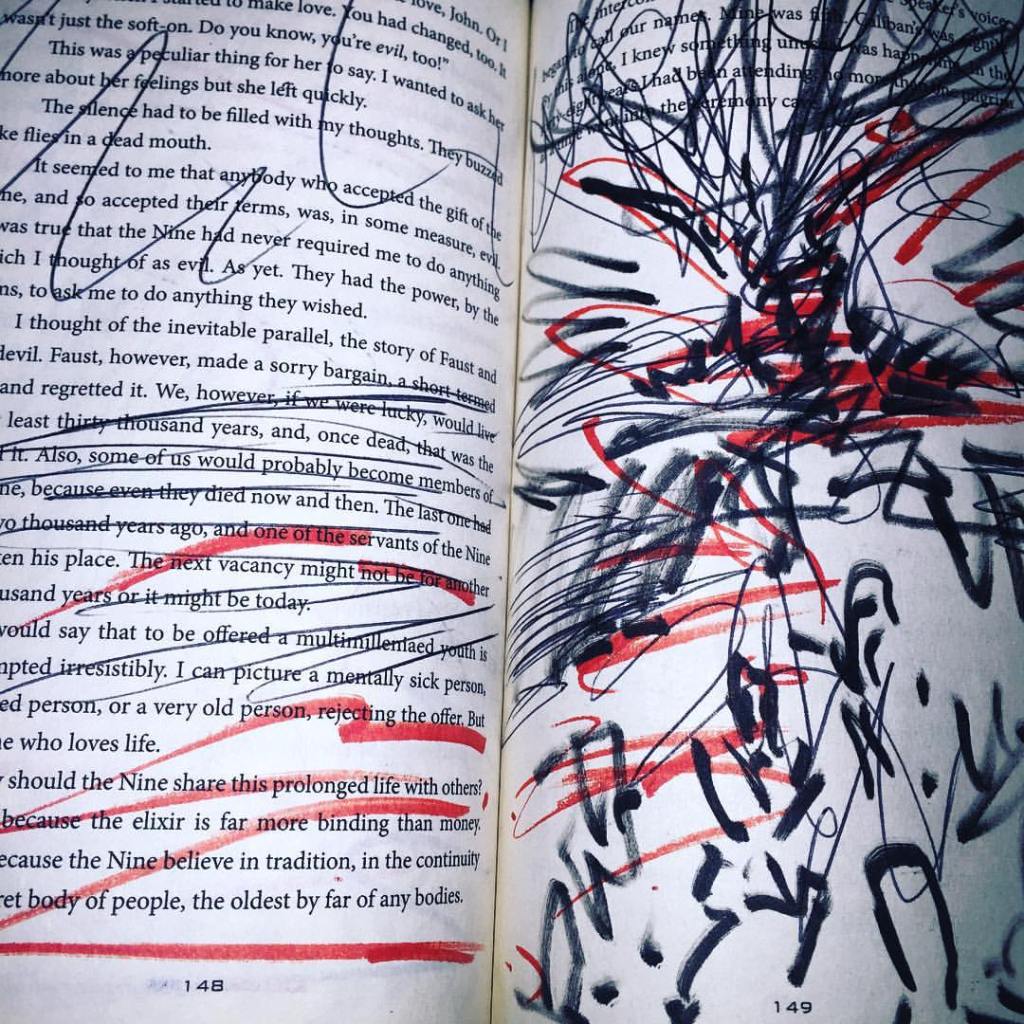 I started to make love. You had changed, too. It
love, John. Or I
wasn't just the soft-on. Do you know, you're evil, too!"
This was a peculiar thing for her to say. I wanted to ask her
more about her feelings but she left quickly.
The silence had to be filled with my thoughts. They buzzed
ke flies in a dead mouth.
It seemed to me that anybody who accepted the gift of the
ne, and so accepted their terms, was, in some measure, evil.
was true that the Nine had never required me to do anything
ich I thought of as evil. As yet. They had the power, by the
ns, to ask me to do anything they wished.
I thought of the inevitable parallel, the story of Faust and
devil. Faust, however, made a sorry bargain, a short-termed
and regretted it. We, however, if we were lucky, would live
least thirty thousand years, and, once dead, that was the
f it. Also, some of us would probably become members of
ne, because even they died now and then. The last one had
wo thousand years ago, and one of the servants of the Nine
en his place. The next vacancy might not be for another
usand years or it might be today.
would say that to be offered a multimilleniaed youth is
mpted irresistibly. I can picture a mentally sick person,
ed person, or a very old person, rejecting the offer. But
e who loves life.
y should the Nine share this prolonged life with others?
because the elixir is far more binding than money.
ecause the Nine believe in tradition, in the continuity
ret body of people, the oldest by far of any bodies.
148
speaker's voice
to call our names. Mine was Caliban's was
this alone, I knew something was in the
years I had been attending, no more
the ceremony
149